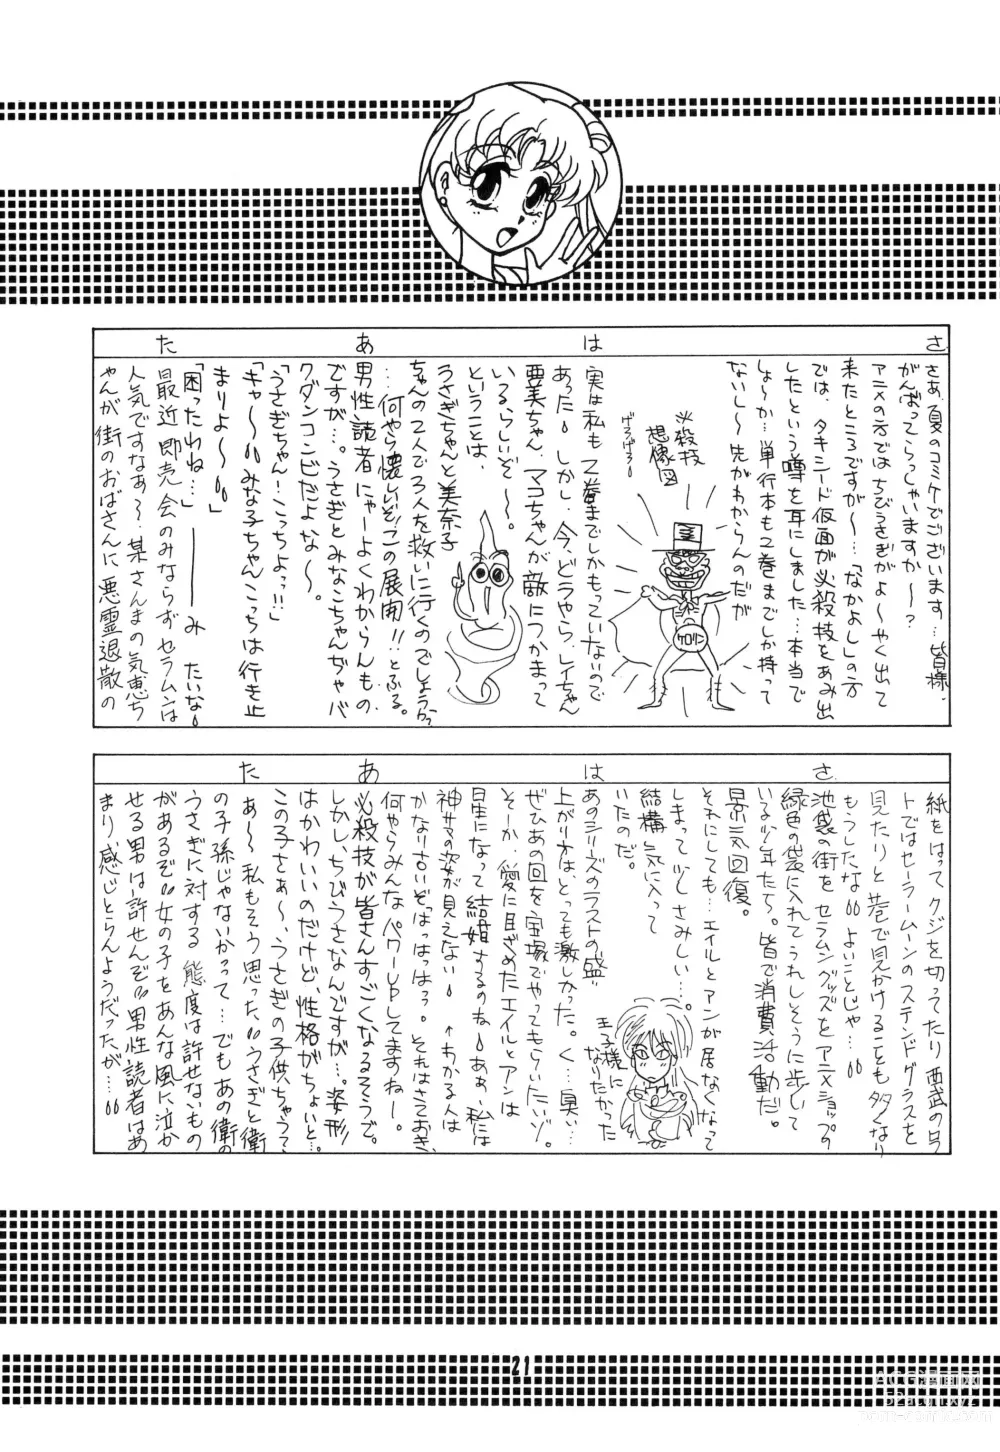 さ は あ た
さあ、夏のコミケでございます…皆様、
がんばってらっしゃいますか〜?
アニメの方ではちびうさぎがよ〜やく出出て
来たところですが〜…「なかよし」の方
では、タキシード仮面が必殺技をあみ出
したという噂を耳にしました…本当で
しょ〜か…単行本も2巻までしか持って
ないし〜先がわからんのだが
必殺技
想像図
げろげろ〜
ケロリン
実は私も2巻までしかもっていないので
あった。しかし、今、どうやら、レイちゃん
亜美ちゃん、マコちゃんが敵につかまって
いるらしいぞ〜。
ということは、
うさぎちゃんと美奈子
ちゃんの2人で3人を救いに行くのでしょうか
…何やら懐しいぞ!この展開!!とふる。
男性読者にゃーよくわからんもの
ですが…。うさぎとみなこちゃんぢゃバ
クダンコンビだよな〜。
「うさぎちゃん!こっちよっ!!」
「キャ〜〜みな子ちゃんこっちは行き止
まりよ〜」
「困ったわね…」
――みたいな。
最近即売会のみならずセラムンは
人気ですなあ〜、某さんまの気恵ち
ゃんが街のおばさんに悪霊退散の
さ は あ た
紙をはってクジを切ってたり西武の〇
トではセーラームーンのステンドグラスを
見たりと巷で見かけることも多くなり
もうしたな。よいことじゃ…。
池袋の街をセラムングッズをアニメショップの
緑色の袋に入れてうれしそうに歩して
いる少年たち。皆で消費活動だ。
景気回復。
それにしても…エイルとアンが居なくなって
しまって少しさみしい…。
結構気に入って
いたのだ。
あのシリーズのラストの盛
上がり方は、とっても激しかった。く…臭い…
ぜひあの回を宝塚でやってもらいたいゾ。
そーか、愛に目ざめたエイルとアンは
星になって結婚するのね。ああ、私には
神サマの姿が見えない。↑わかる人は
かなりさむいぞ。はっはっはっ。それはさておき、
何やらみんなパワーUPしてますねー。
必殺技が皆さんすごくなるそうで。
しかし、ちびうさなんですが…。姿形
はかわいいのだけど、性格がちょいと…。
この子さぁ〜、うさぎの子供ちゃうて
あ〜私もそう思った。うさぎと衛
の子孫じゃないかって…でもあの衛の
うさぎに対する態度は許せないもの
があるぞ女の子をあんな風に泣か
せる男は許せんぞ男性読者はあ
まり、感じとらんようだったが…。
王子様に
なりたかった
21